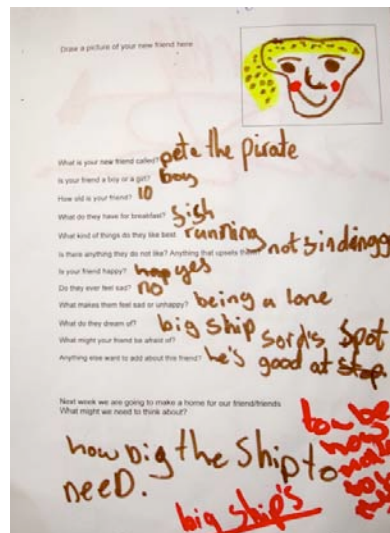 Draw a picture of your new friend here
What is your new friend called? pete the pirate
Is your friend a boy or a girl? boy
How old is your friend? 10
What do they have for breakfast? fish
What kind of things do they like best running
Is there anything they do not like? Anything that upsets them? not findingg
Is your friend happy? yes
Do they ever feel sad? no
What makes them feel sad or unhappy? being a lone
What do they dream of? big ship
What might your friend be afraid of? sord's Spot
Anything else want to add about this friend? he's good at
Next week we are going to make a home for our friend/friends
What might we need to think about?
how big the Ship to
neeD.
big ship's